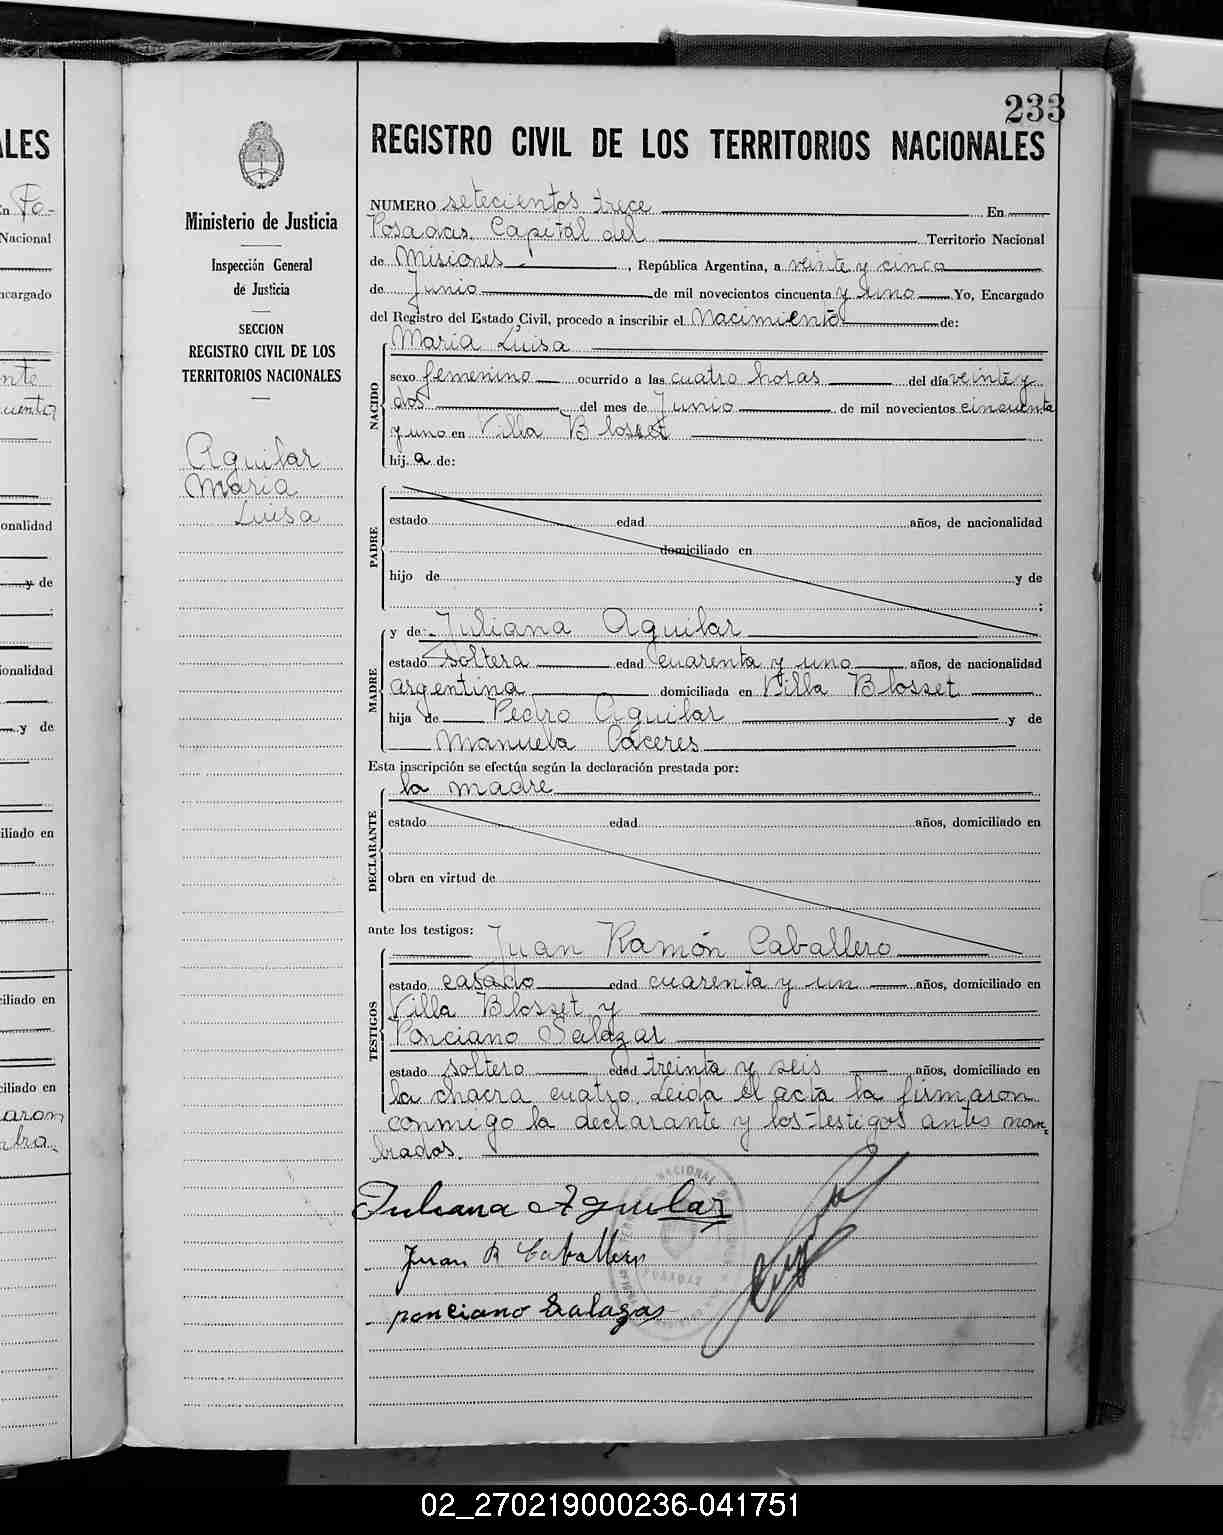 233
REGISTRO CIVIL DE LOS TERRITORIOS NACIONALES
Ministerio de Justicia
Inspección General
de Justicia
SECCION
REGISTRO CIVIL DE LOS
TERRITORIOS NACIONALES
Aguilar
Maria
Luisa
NUMERO setecientos trece En
Posadas Capital del Territorio Nacional
de Misiones, República Argentina, a veinte y cinco
de Junio de mil novecientos cincuenta y uno Yo, Encargado
del Registro del Estado Civil, procedo a inscribir el Nacimiento de:
NACIDO
Maria Luisa
sexo femenino ocurrido a las cuatro horas del día veinte y
dos del mes de Junio de mil novecientos cincuenta
y uno en Villa Blosset
hij a de:
PADRE
estado edad años, de nacionalidad
domiciliado en
hijo de y de
;
MADRE
y de: Juliana Aguilar
estado soltera edad cuarenta y uno años, de nacionalidad
argentina domiciliada en Villa Blosset
hija de Pedro Aguilar y de
Manuela Cáceres
Esta inscripción se efectúa según la declaración prestada por:
DECLARANTE
la madre
estado edad años, domiciliado en
obra en virtud de
ante los testigos: Juan Ramón Caballero
TESTIGOS
estado casado edad cuarenta y un años, domiciliado en
Villa Blosset y
Ponciano Salazar
estado soltero edad treinta y seis años, domiciliado en
la chacra cuatro. Leida el acta la firmaron
conmigo la declarante y los testigos antes nom-
brados.
Juliana Aguilar
Juan R Caballero
ponciano Salazar
ALES
En Po-
Nacional
ncargado
onalidad
y de
ionalidad
y de
iliado en
ciliado en
ciliado en
aron
02_270219000236-041751